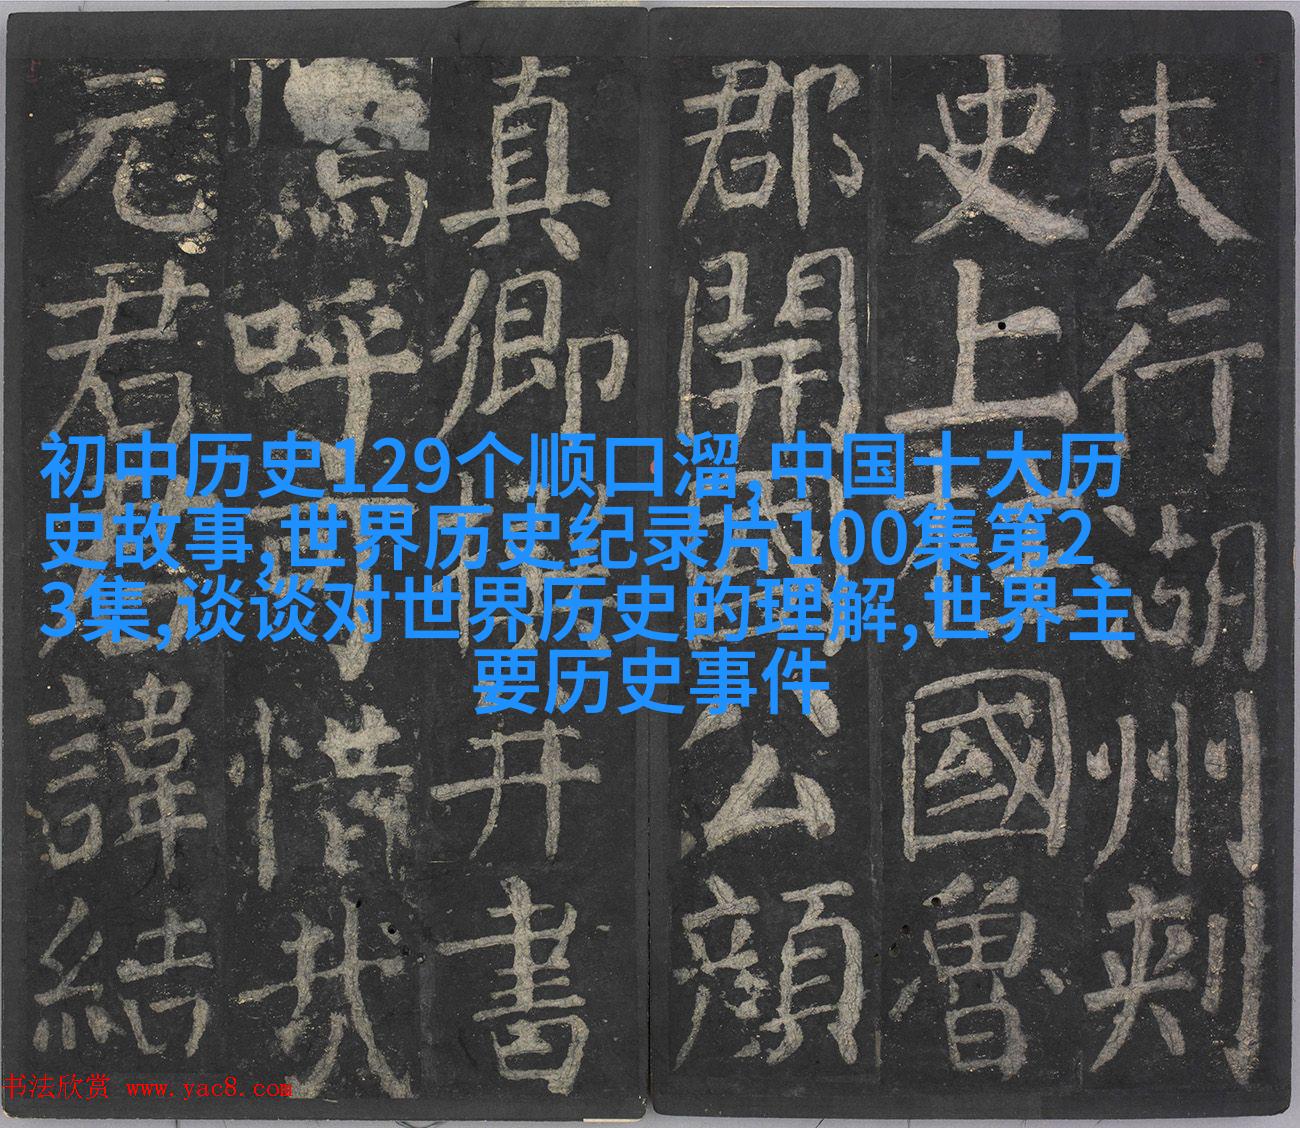 夫行湖州刺
史上柱國魯
郡開國公顏
真卿撰并書
嗚呼可惜哉
元君君諱結
初中历史129个顺口溜,中国十大历
史故事,世界历史纪录片100集第2
3集,谈谈对世界历史的理解,世界主
要历史事件
书法欣赏 www.yac8.com